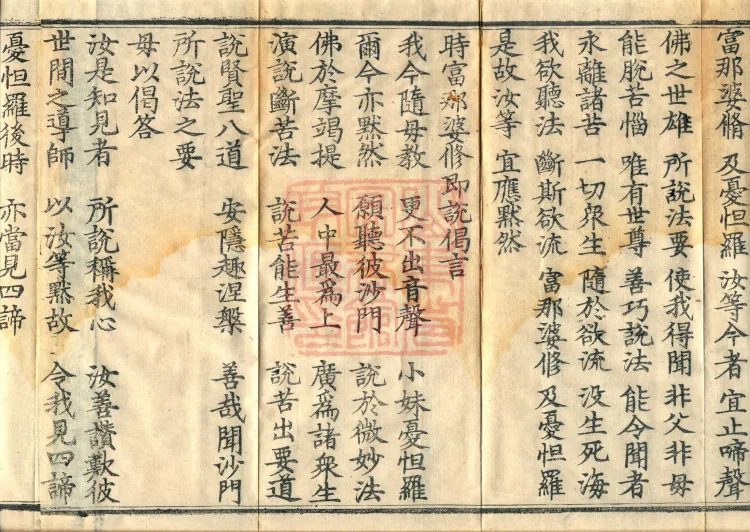 富那婆脩 及憂怛羅 汝等今者 宜止啼聲
佛之世雄 所說法要 使我得聞 非父非母
能脫苦惱 唯有世尊 善巧說法 能令聞者
永離諸苦 一切衆生 隨於欲流 没生死海
我欲聽法 斷斯欲流 富那婆修 及憂怛羅
是故汝等 宜應默然
時富那婆修即說偈言
我今隨母教 更不出音聲 小妹憂怛羅
爾今亦默然 願聽彼沙門 說於微妙法
佛於摩竭提 人中最爲上 廣爲諸衆生
演說斷苦法 說苦能生善 說苦出要道
說賢聖八道 安隱趣涅槃 善哉聞沙門
所說法之要
母以偈答
汝是知見者 所說稱我心 汝善讚歎彼
世間之導師 以汝等默故 令我見四諦
憂怛羅後時 亦當見四諦